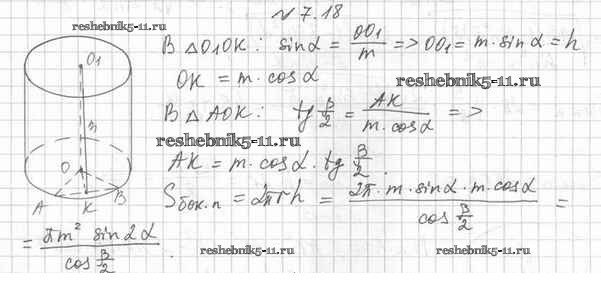 № 7.18
reshebnik5-11.ru
В △O1OK: sinα = OO1/m => OO1 = m·sinα = h
OK = m·cosα
reshebnik5-11.ru
В △AOK: tg β/2 = AK/(m·cosα) =>
reshebnik5-11.ru
AK = m·cosα·tg β/2.
Sбок.п = 2πrh = (2π·m·sinα·m·cosα)/(cos β/2) =
= (πm² sin2α)/(cos β/2).
reshebnik5-11.ru
reshebnik5-11.ru
O1
O
A
K
B